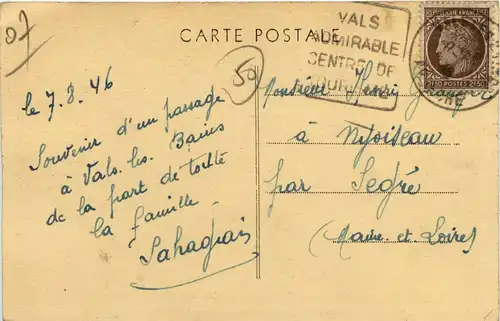 07
CARTE POSTALE
VALS
ADMIRABLE
CENTRE DE
50
le 7.8.46
Souvenir d'un passage
à Vals-les-Bains
de la part de toute
la famille
Monsieur Henri
à Nyoiseau
par Segré
(Maine-et-Loire)